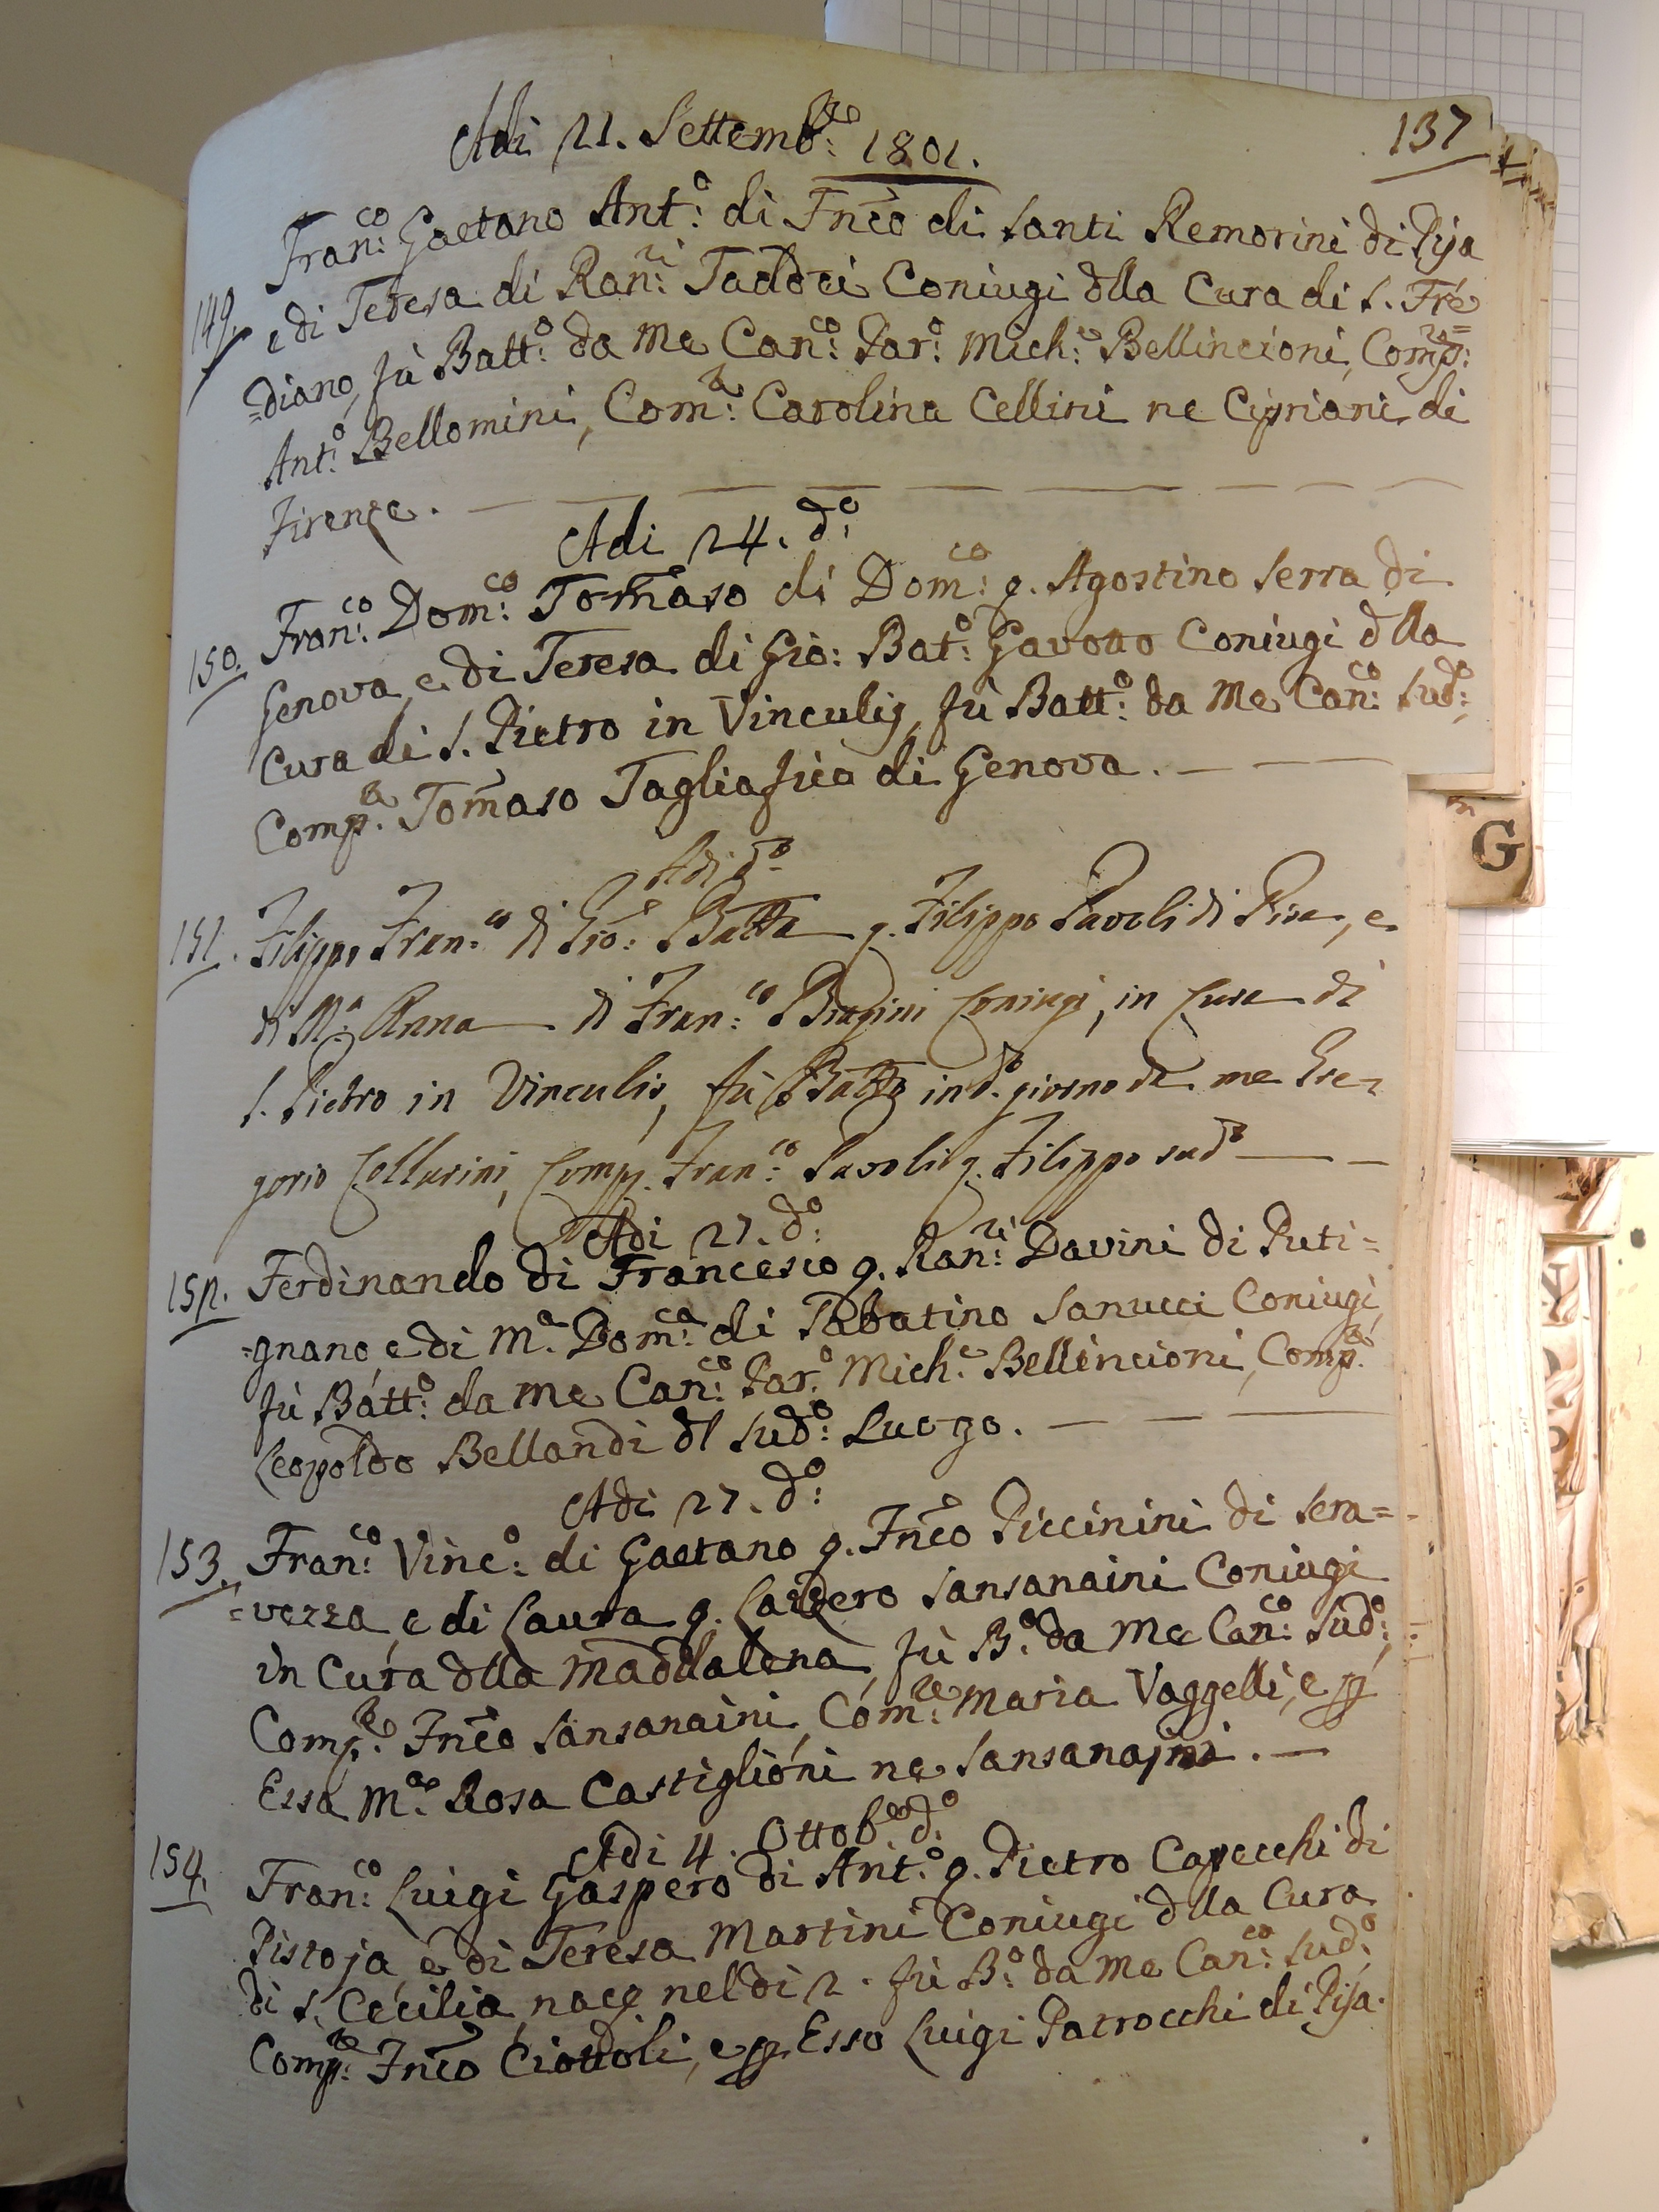 137
Adi 21. Settemb:re 1801.
149. Fran:co Gaetano Ant:o di Fnco di Santi Remorini di Pisa
e di Teresa di Ran:ri Taddei Coniugi dlla Cura di S. Fre
=diano, fù Batt:o da me Can:co Par:o Mich:e Bellincioni, Comp:re=
Ant:o Bellomini, Com:a Carolina Cellini ne Cipriani di
Firenze.
Adi 24. d:o
150. Fran:co Dom:co Tomaso di Dom:co q. Agostino Serra di
Genova, e di Teresa di Gio: Bat:o Gavotto Coniugi dlla
Cura di S. Pietro in Vinculis, fù Batt:o da me Can:co Sud:o,
Comp:re Tomaso Tagliafico di Genova.
Adi d:o
151. Filippo Fran:co di Gio: Batta q. Filippo Pavoli di Pisa, e
di M:a Anna di Fran:co Coniugi, in Cura di
S. Pietro in Vinculis, fù Batto in d:o giorno da me Gre=
gorio Collurini, Comp. Fran:co Pavoli q. Filippo sud:o
Adi 27. d:o
152. Ferdinando di Francesco q. Ran:ri Davini di Puti=
=gnano, e di M:a Dom:ca di Sabatino Sanucci Coniugi,
fù Batt:o da me Can:co Par:o Mich:e Bellincioni, Comp:re
Leopoldo Bellandi dl Sud:o Luogo.
Adi 27. d:o
153. Fran:co Vinc:o di Gaetano q. Fnco Piccinini di Sera=
=vezza, e di Laura q. Sansanaini Coniugi
in Cura dlla Maddalena, fù B:o da me Can:co Sud:o,
Comp:re Fnco Sansanaini, Com:re Maria Vaggelli, e p
Essa M:a Rosa Castiglioni ne Sansanajni.
Adi 4. Ottob:re d:o
154. Fran:co Luigi Gaspero di Ant:o q. Pietro Capecchi di
Pistoja, e di Teresa Martini Coniugi dlla Cura
di S. Cecilia, nacq nel di 2. fù B:o da me Can:co Sud:o
Comp:re Fnco Ciottoli, e p Esso Luigi Patrocchi di Pisa.
G